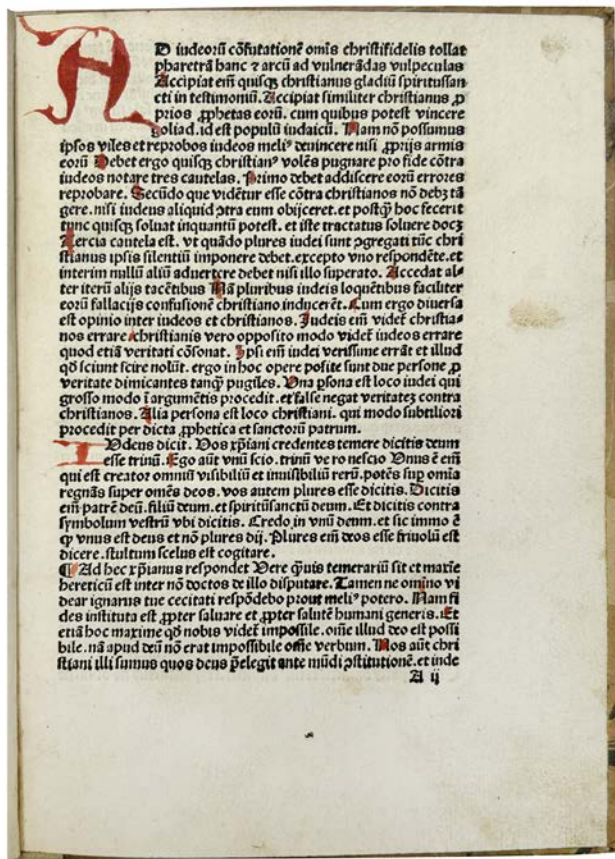 AD iudeorū cōfutationē omīs christifidelis tollat
pharetrā hanc ⁊ arcū ad vulnerādas vulpeculas
Accipiat em̄ quisqꝫ christianus gladiū spiritussan
cti in testimoniū. Accipiat similiter christianus ꝓ
prios ꝓphetas eorū. cum quibus potest vincere
goliad. id est populū iudaicū. Nam nō possumus
ipsos viles et reprobos iudeos meliꝰ deuincere nisi ꝓprijs armis
eorū Debet ergo quisqꝫ christianꝰ volēs pugnare pro fide cōtra
iudeos notare tres cautelas. Primo debet addiscere eorū errores
reprobare. Secūdo que vidētur esse cōtra christianos nō debꝫ tā
gere. nisi iudeus aliquid ꝯtra eum obijceret. et postqꝫ̄ hoc fecerit
tunc quisqꝫ soluat inquantū potest. et iste tractatus soluere docꝫ
Tercia cautela est. vt quādo plures iudei sunt ꝯgregati tūc chri
stianus ipsis silentiū imponere debet. excepto vno respondēte. et
interim nullū aliū aduertere debet nisi illo superato. Accedat al-
ter iterū alijs tacētibus Nā pluribus iudeis loquētibus faciliter
eorū fallacijs confusionē christiano inducerēt. Cum ergo diuersa
est opinio inter iudeos et christianos. Iudeis em̄ videt̄ christia-
nos errare christianis vero opposito modo videt̄ iudeos errare
quod etiā veritati cōsonat. Ipsi em̄ iudei verissime errāt et illud
qd̄ sciunt scire nolūt. ergo in hoc opere posite sunt due persone ꝓ
veritate dimicantes tanqꝫ̄ pugiles. Vna ꝑsona est loco iudei qui
grosso modo ī argumētis procedit. et false negat veritatez contra
christianos. Alia persona est loco christiani. qui modo subtiliori
procedit per dicta ꝓphetica et sanctorū patrum.
IVdeus dicit. Vos xp̄iani credentes temere dicitis deum
esse trinū. Ego aūt vnū scio. trinū ve ro nescio Vnus ē em̄
qui est creator omniū visibiliū et inuisibiliū rerū. potēs suꝑ omīa
regnās super omēs deos. vos autem plures esse dicitis. Dicitis
em̄ patrē deū. filiū deum. et spiritūsanctū deum. Et dicitis contra
symbolum vestrū vbi dicitis. Credo in vnū deum. et sic immo ē
qꝫ vnus est deus et nō plures dij. Plures em̄ deos esse friuolū est
dicere. stultum scelus est cogitare.
¶ Ad hec xp̄ianus respondet Vere qꝫ̄uis temerariū sit et maxīe
hereticū est inter nō doctos de illo disputare. Tamen ne omīno vi
dear ignarus tue cecitati respōdebo prout meliꝰ potero. Nam fi
des instituta est ꝓpter saluare et ꝓpter salutē humani generis. Et
etiā hoc maxime qd̄ nobis videt̄ impossile. om̄e illud deo est possi
bile. nā apud deū nō erat impossibile om̄e verbum. Nos aūt chri
stiani illi sumus quos deus p̄elegit ante mūdi ꝯstitutionē. et inde
A ij